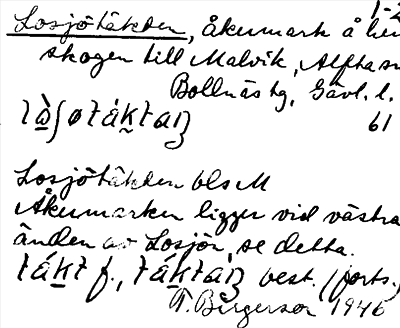 1-2
Losjötäkten, åkermark å hem
skogen till Malvik, Alfta sn
Bollnäs tg, Gävl. l.
61
Losjötäkten bls M
Åkermarken ligger vid västra
änden av Losjön, se detta.
best. (forts.)
T. Bürgerson 1946